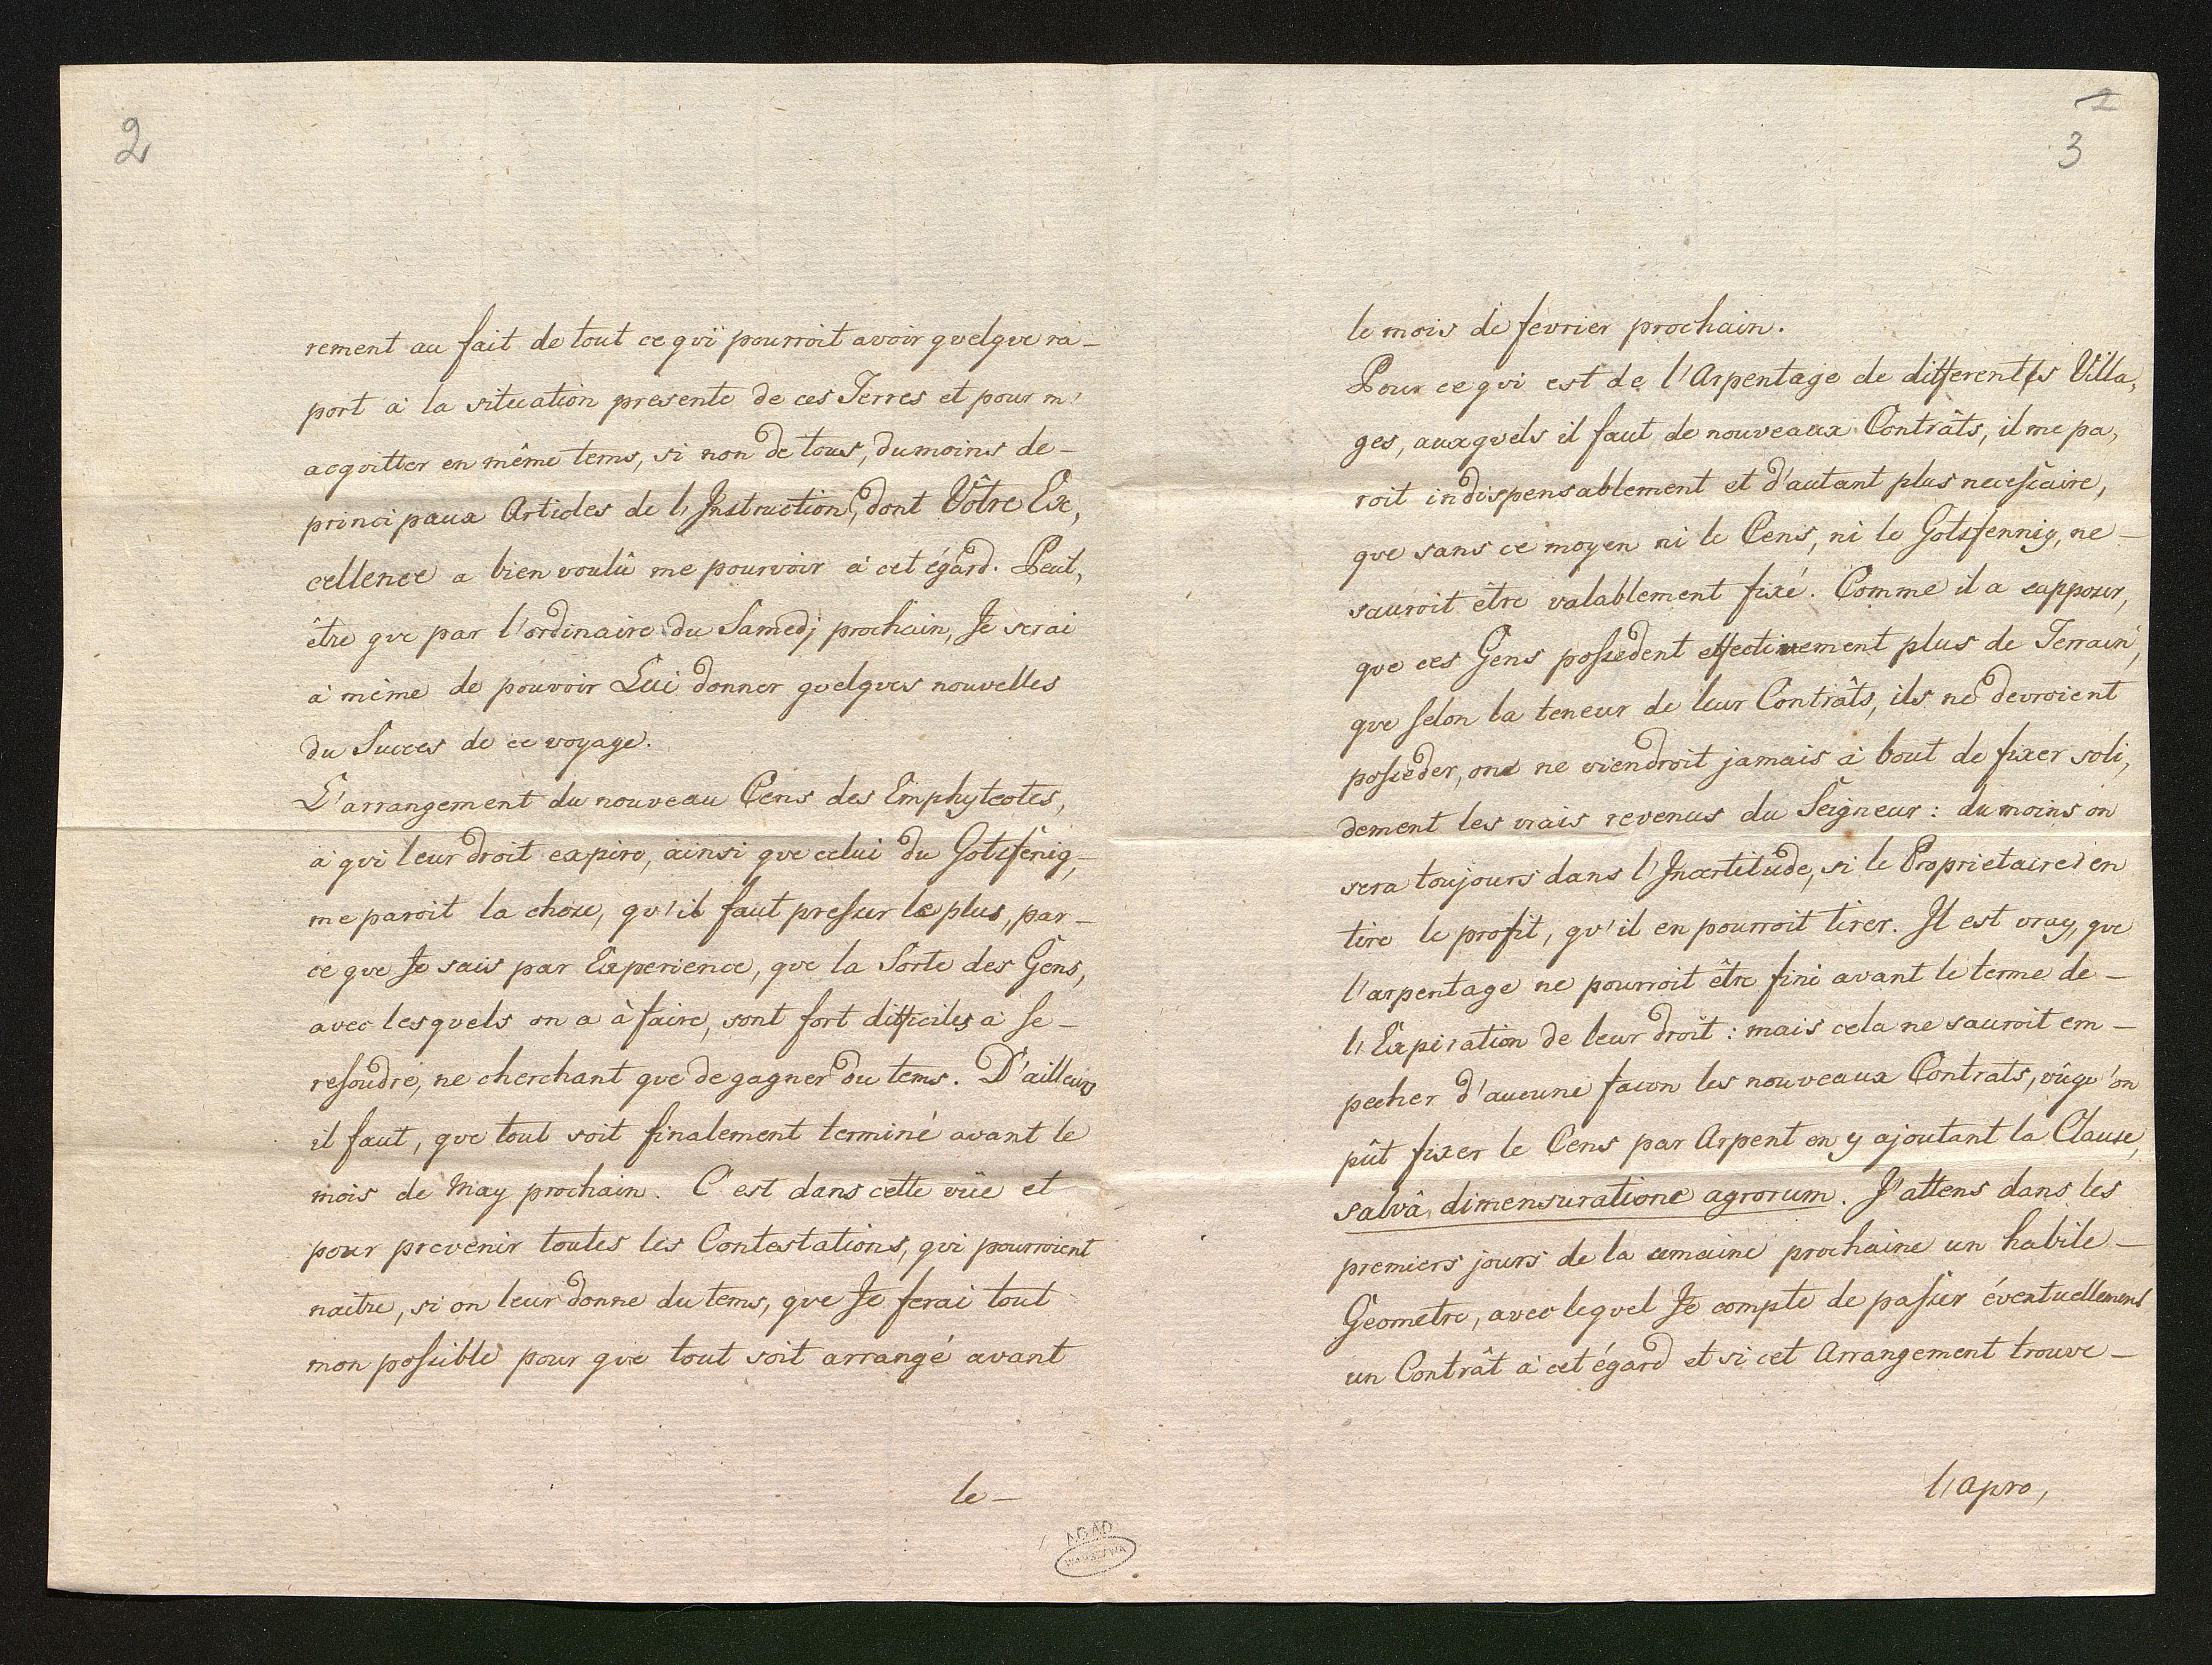 2
rement au fait de tout ce qui pourroit avoir quelque ra-
port à la situation presente de ces Terres et pour m'
acquitter en même tems, si non de tous, du moins de-
principaux Articles de l'Instruction, dont Vôtre Ex,
cellence a bien voulû me pourvoir à cet égard. Peut,
être que par l'ordinaire du Samedj prochain, Je serai
à même de pouvoir Lui donner quelques nouvelles
du Succes de ce voyage.
L'arrangement du nouveau Cens des Emphyteotes,
à qui leur droit expire, ainsi que celui du Gotsfenig,-
me paroit la chose, qu'il faut presser le plus, par-
ce que Je sais par Experience, que la Sorte des Gens,
avec lesquels on a à faire, sont fort difficiles à se-
resoudre, ne cherchant que de gagner du tems. D'ailleurs
il faut, que tout soit finalement terminé avant le
mois de May prochain. C'est dans cette vüe et
pour prevenir toutes les Contestations, qui pourroient
naitre, si on leur donne du tems, que Je ferai tout
mon possible pour que tout soit arrangé avant
le-
ADAD
WARSZAWA
2
3
le mois de fevrier prochain.
Pour ce qui est de l'Arpentage de differents Villa,
ges, auxquels il faut de nouveaux Contrâts, il me pa,
roit indispensablement et d'autant plus necessaire,
que sans ce moyen ni le Cens, ni le Gotsfennig, ne-
sauroit être valablement fixé. Comme il a
que ces Gens possedent effectivement plus de Terrain,
que selon la teneur de leur Contrâts, ils ne devroient
posseder, on ne viendroit jamais à bout de fixer soli,
dement les vrais revenus du Seigneur: du moins on
sera toujours dans l'Incertitude, si le Proprietaire en
tire le profit, qu'il en pourroit tirer. Il est vray, que
l'arpentage ne pourroit être fini avant le terme de-
l'Expiration de leur droit: mais cela ne sauroit em-
pecher d'aucune facon les nouveaux Contrats, vûqu'on
pût fixer le Cens par Arpent en y ajoutant la Clause,
salvâ dimensuratione agrorum. J'attens dans les
premiers jours de la semaine prochaine un habile-
Geometre, avec lequel Je compte de passer éventuellement
un Contrât à cet égard et si cet Arrangement trouve-
l'apro,